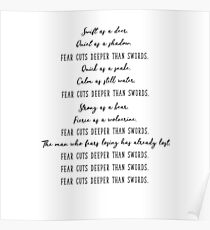 Swift as a deer.
Quiet as a shadow.
FEAR CUTS DEEPER THAN SWORDS.
Quick as a snake.
Calm as still water.
FEAR CUTS DEEPER THAN SWORDS.
Strong as a bear.
Fierce as a wolverine.
FEAR CUTS DEEPER THAN SWORDS.
The man who fears losing has already lost.
FEAR CUTS DEEPER THAN SWORDS.
FEAR CUTS DEEPER THAN SWORDS.
FEAR CUTS DEEPER THAN SWORDS.